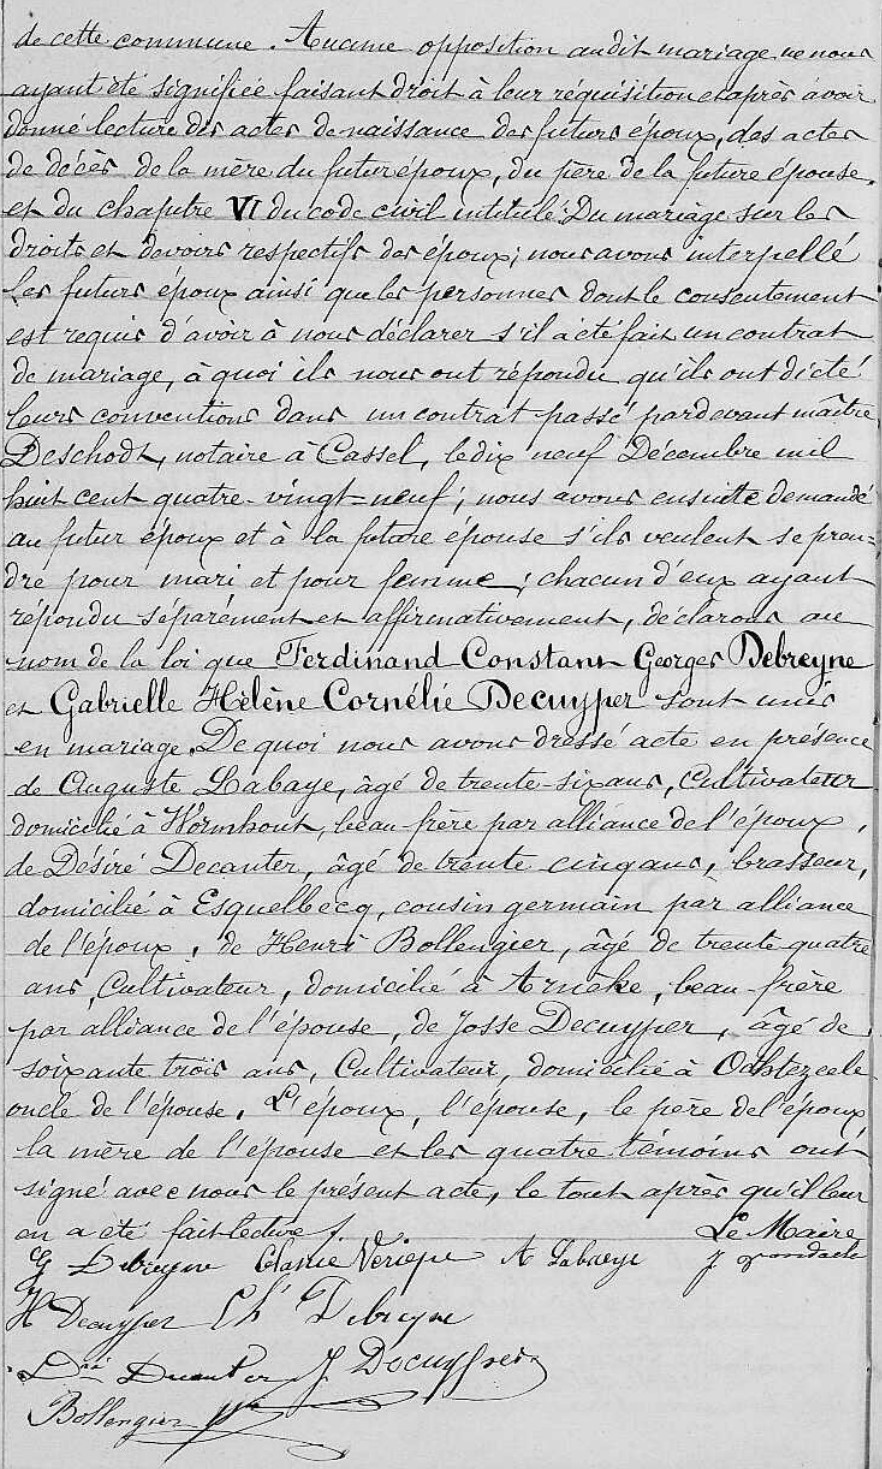 de cette commune. Aucune opposition audit mariage ne nous
ayant été signifiée faisant droit à leur réquisition et après avoir
donné lecture des actes de naissance des futurs époux, des actes
de décès de la mère du futur époux, du père de la future épouse,
et du chapitre VI du code civil intitulé: Du mariage sur les
droits et devoirs respectifs des époux; nous avons interpellé
les futurs époux ainsi que les personnes dont le consentement
est requis d'avoir à nous déclarer s'il a été fait un contrat
de mariage, à quoi ils nous ont répondu qu'ils ont dicté
leurs conventions dans un contrat passé pardevant maître
Deschodt, notaire à Cassel, le dix neuf Décembre mil
huit cent quatre-vingt=neuf; nous avons ensuite demandé
au futur époux et à la future épouse s'ils veulent se pren=
dre pour mari et pour femme; chacun d'eux ayant
répondu séparément et affirmativement, déclarons au
nom de la loi que Ferdinand Constant Georges Debreyne
et Gabrielle Hélène Cornélie Decuyper sont unis
en mariage. De quoi nous avons dressé acte en présence
de Auguste Labaye, âgé de trente-six ans, Cultivateur
domicilié à Wormhout, beau-frère par alliance de l'époux,
de Désiré Decanter, âgé de trente cinq ans, brasseur,
domicilié à Esquelbecq, cousin germain par alliance
de l'époux, de Henri Bollengier, âgé de trente quatre
ans, Cultivateur, domicilié à Arnèke, beau-frère
par alliance de l'épouse, de Josse Decuyper, âgé de
soixante trois ans, Cultivateur, domicilié à Ochtezeele
oncle de l'épouse. L'époux, l'épouse, le père de l'époux,
la mère de l'épouse et les quatre témoins ont
signé avec nous le présent acte, le tout après qu'il leur
en a été fait lecture /.
Le Maire
G Debreyne Clarice Veriepe A Labaeye J
H Decuyper Ch' Debreyne
D.ré Decanter J Decuyper
Bollengier